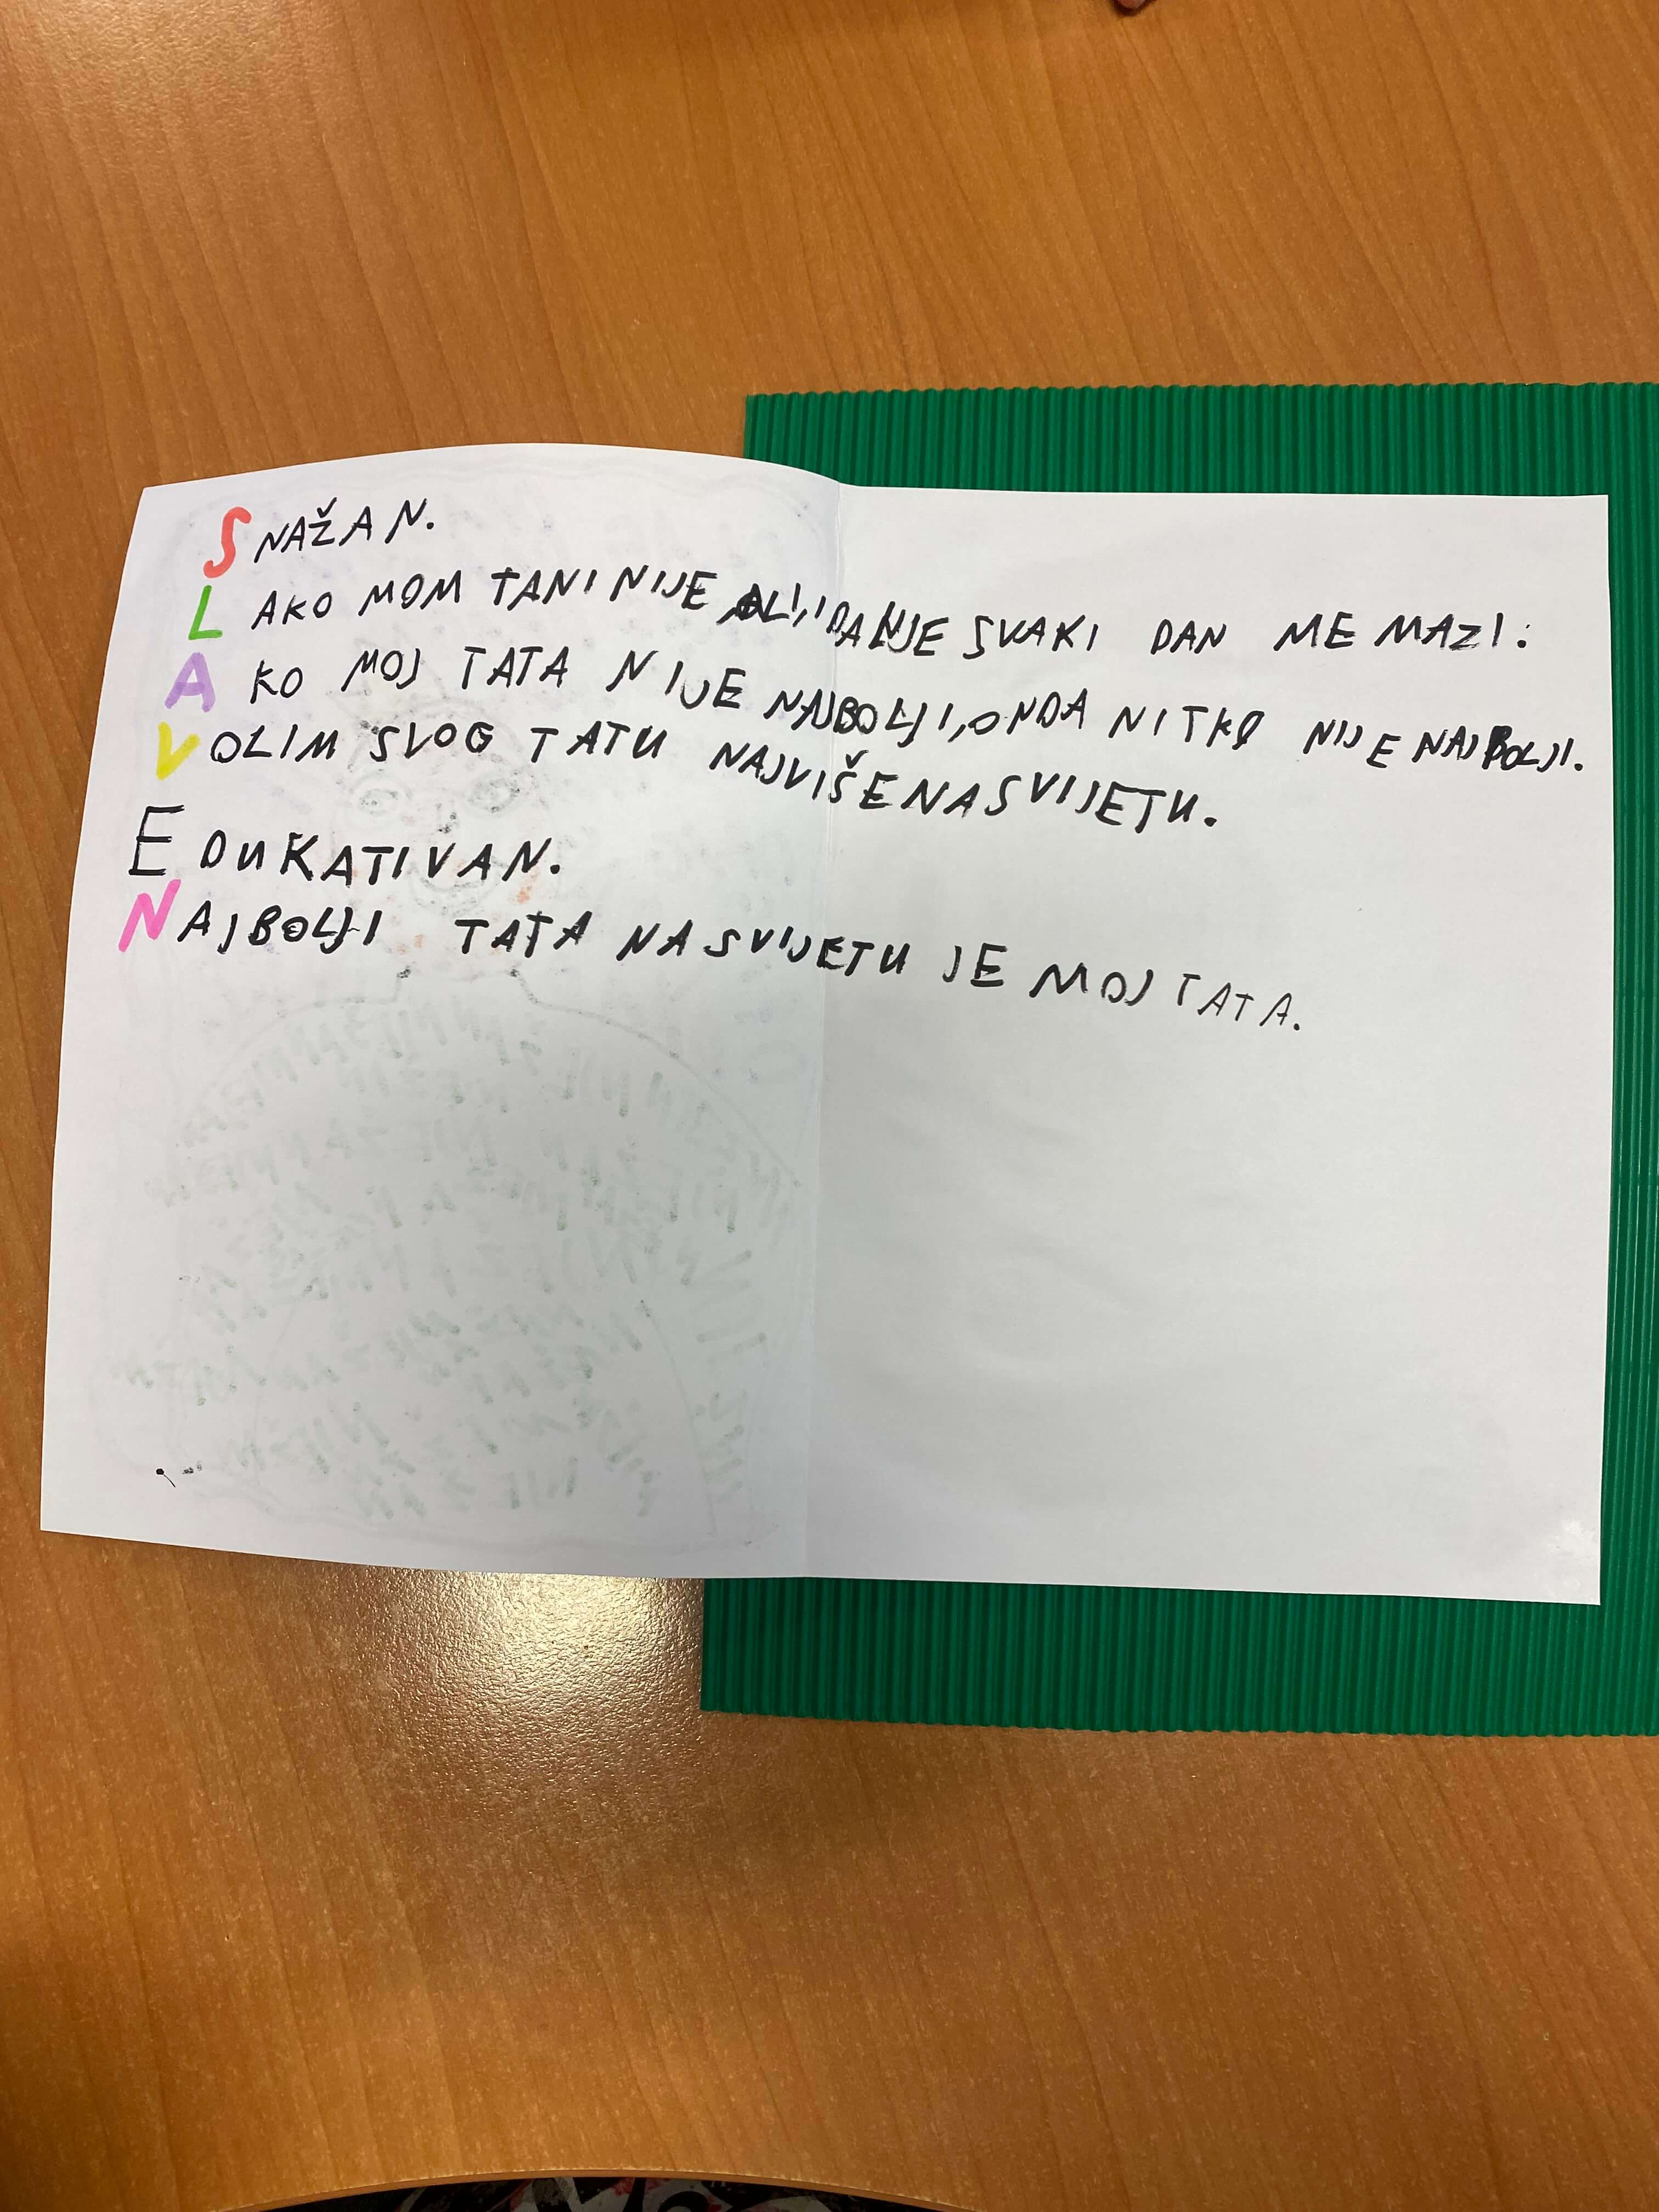 SNAŽAN.
LAKO MOM TANI NIJE ALI, I DALJE SVAKI DAN ME MAZI.
AKO MOJ TATA NIJE NAJBOLJI, ONDA NITKO NIJE NAJBOLJI.
VOLIM SVOG TATU NAJVIŠE NA SVIJETU.
EDUKATIVAN.
NAJBOLJI TATA NA SVIJETU JE MOJ TATA.